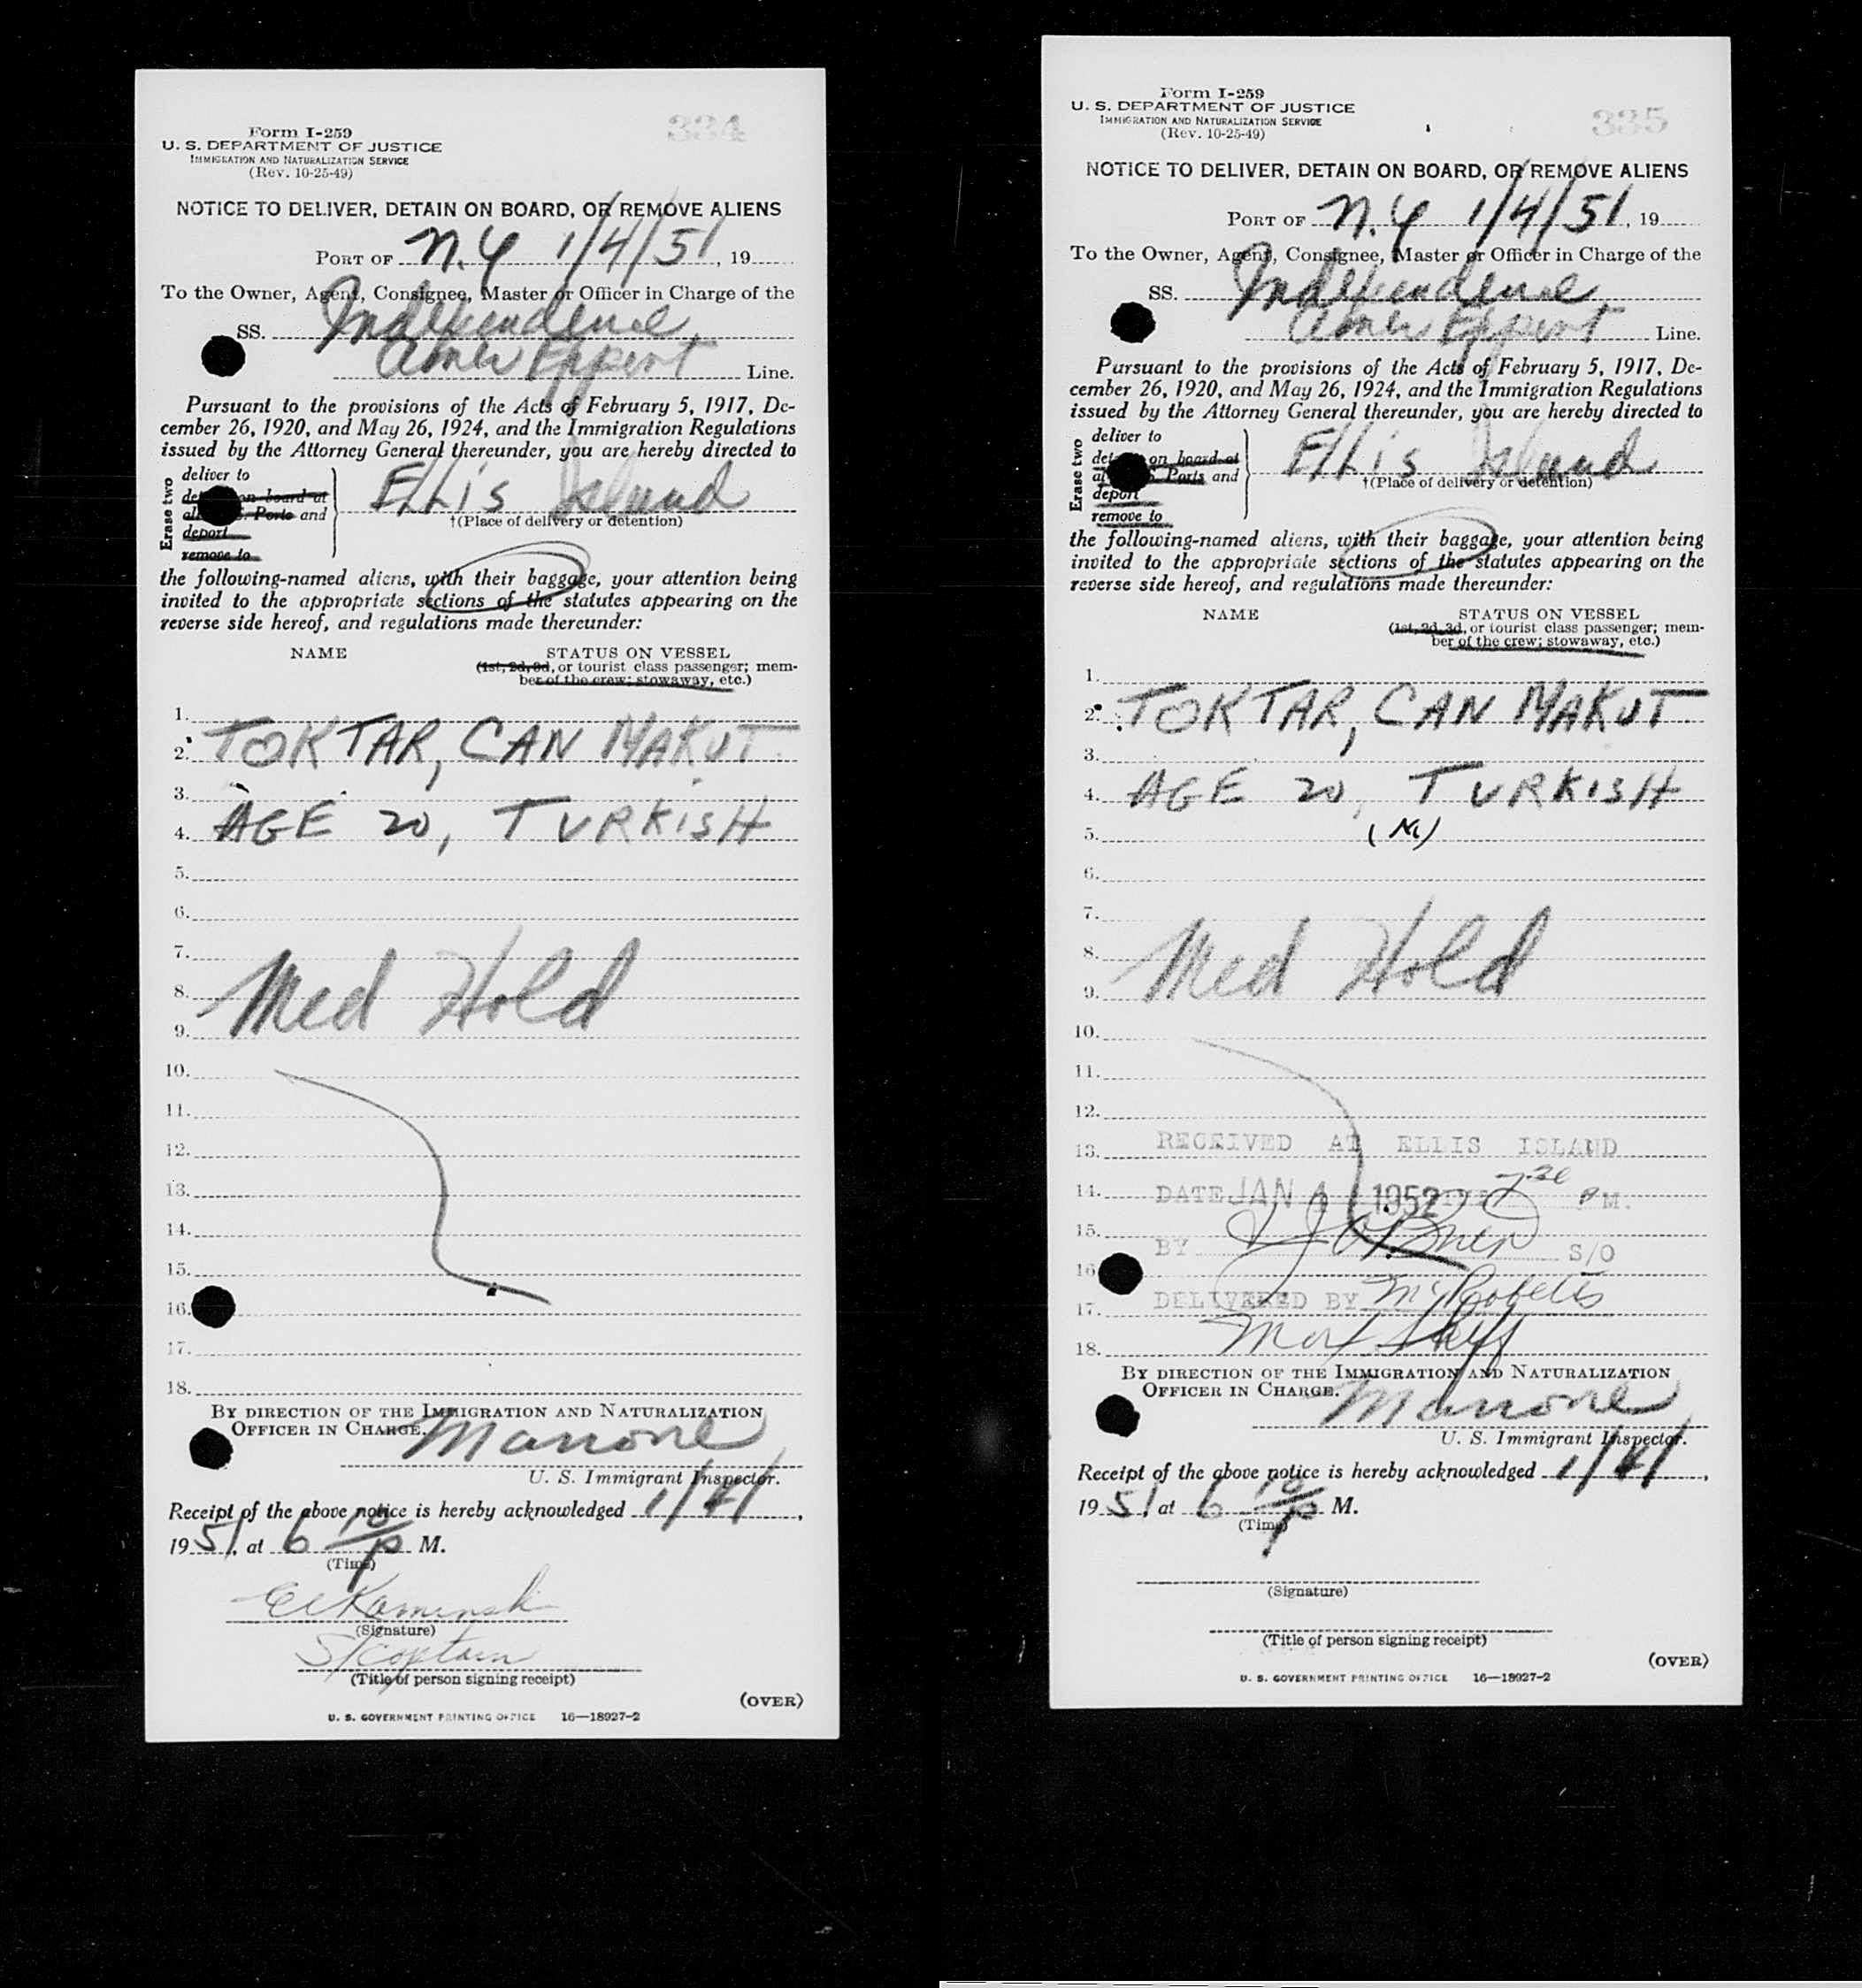 Form I-259
U. S. DEPARTMENT OF JUSTICE
IMMIGRATION AND NATURALIZATION SERVICE
(Rev. 10-25-49)
334
NOTICE TO DELIVER, DETAIN ON BOARD, OR REMOVE ALIENS
PORT OF N.Y 1/4/51, 19
To the Owner, Agent, Consignee, Master or Officer in Charge of the
SS. Independence
Amer Export Line.
Pursuant to the provisions of the Acts of February 5, 1917, De-
cember 26, 1920, and May 26, 1924, and the Immigration Regulations
issued by the Attorney General thereunder, you are hereby directed to
Erase two
deliver to
on board at
Ports and
deport
remove to
Ellis Island
†(Place of delivery or detention)
the following-named aliens, with their baggage, your attention being
invited to the appropriate sections of the statutes appearing on the
reverse side hereof, and regulations made thereunder:
NAME STATUS ON VESSEL
(1st, 2d, 3d, or tourist class passenger; mem-
ber of the crew; stowaway, etc.)
1.
2. TOKTAR, CAN MAKUT
3.
4. AGE 20, TURKISH
5.
6.
7.
8. Med Hold
9.
10.
11.
12.
13.
14.
15.
16.
17.
18.
BY DIRECTION OF THE IMMIGRATION AND NATURALIZATION
OFFICER IN CHARGE. Marrone
U. S. Immigrant Inspector.
Receipt of the above notice is hereby acknowledged 1/4/,
1951, at 6 10/P M.
(Time)
Kaminski
(Signature)
S/Captain
(Title of person signing receipt)
(OVER)
U. S. GOVERNMENT PRINTING OFFICE 16—18927-2
Form I-259
U. S. DEPARTMENT OF JUSTICE
IMMIGRATION AND NATURALIZATION SERVICE
(Rev. 10-25-49)
335
NOTICE TO DELIVER, DETAIN ON BOARD, OR REMOVE ALIENS
PORT OF N.Y 1/4/51, 19
To the Owner, Agent, Consignee, Master or Officer in Charge of the
SS. Independence
Amer Export Line.
Pursuant to the provisions of the Acts of February 5, 1917, De-
cember 26, 1920, and May 26, 1924, and the Immigration Regulations
issued by the Attorney General thereunder, you are hereby directed to
Erase two
deliver to
on board at
Ports and
deport
remove to
Ellis Island
†(Place of delivery or detention)
the following-named aliens, with their baggage, your attention being
invited to the appropriate sections of the statutes appearing on the
reverse side hereof, and regulations made thereunder:
NAME STATUS ON VESSEL
(1st, 2d, 3d, or tourist class passenger; mem-
ber of the crew; stowaway, etc.)
1.
2. TOKTAR, CAN MAKUT
3.
4. AGE 20, TURKISH
5.
6.
7.
8. Med Hold
9.
10.
11.
12.
13. RECEIVED AT ELLIS ISLAND
14. DATE JAN 4 1952 7:20 P M.
15. BY O'Brien S/O
16
17. DELIVERED BY
18.
BY DIRECTION OF THE IMMIGRATION AND NATURALIZATION
OFFICER IN CHARGE. Marrone
U. S. Immigrant Inspector.
Receipt of the above notice is hereby acknowledged 1/4/,
1951, at 6 10/P M.
(Time)
(Signature)
(Title of person signing receipt)
(OVER)
U. S. GOVERNMENT PRINTING OFFICE 16—18927-2